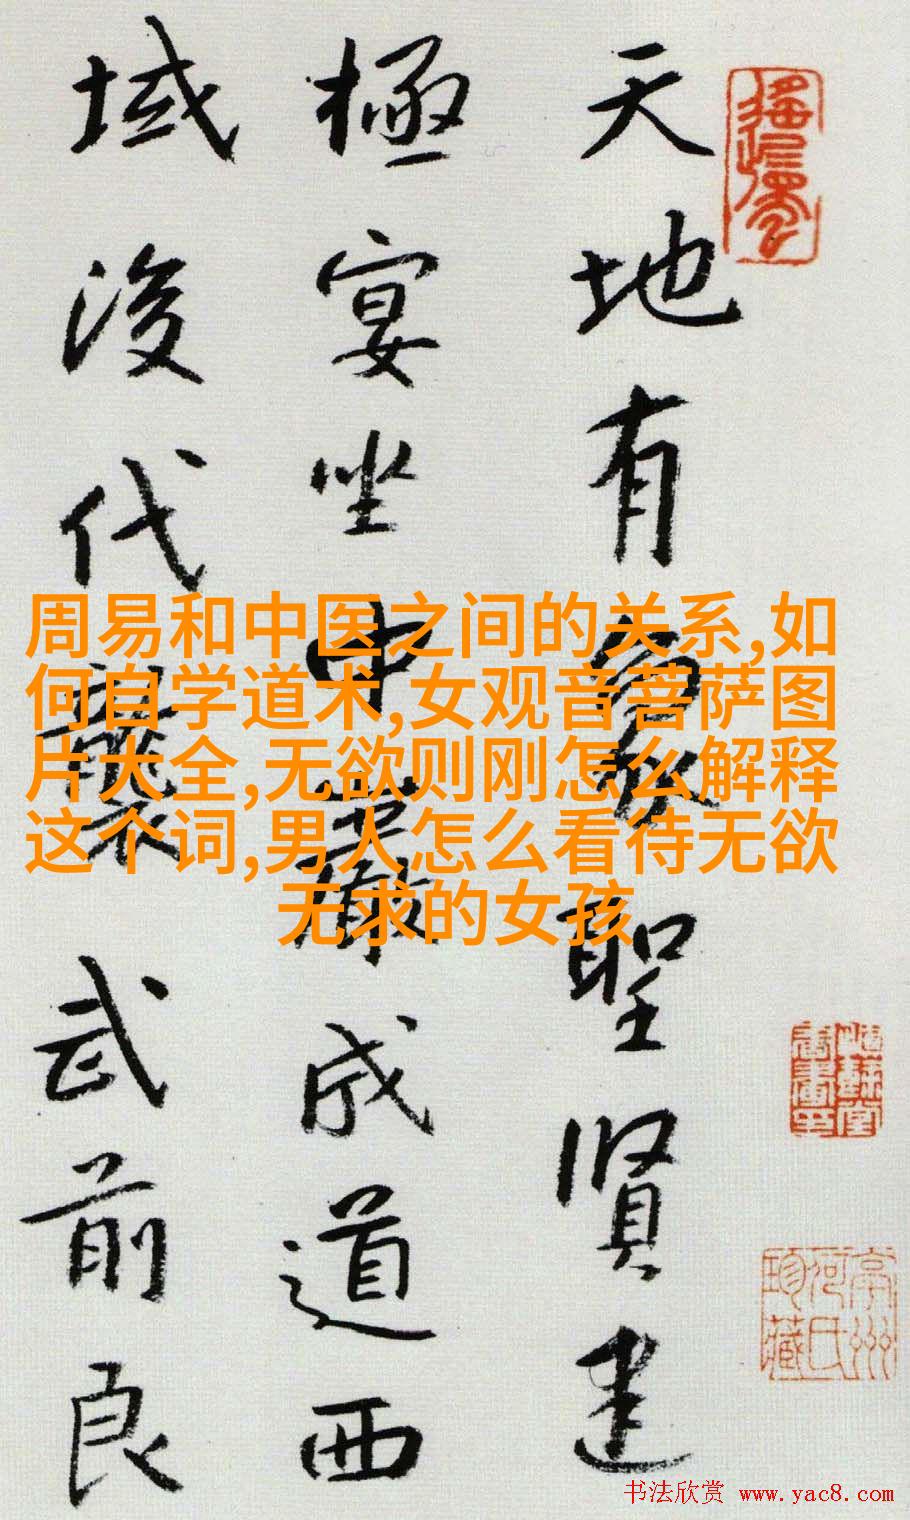 天地有象聖賢建
極宴坐中嚴成道西
域後代襲武前良
周易和中医之间的关系,如
何自学道术,女观音菩萨图
片大全,无欲则刚怎么解释
这个词,男人怎么看待无欲
无求的女孩
书法欣赏 www.yac8.com